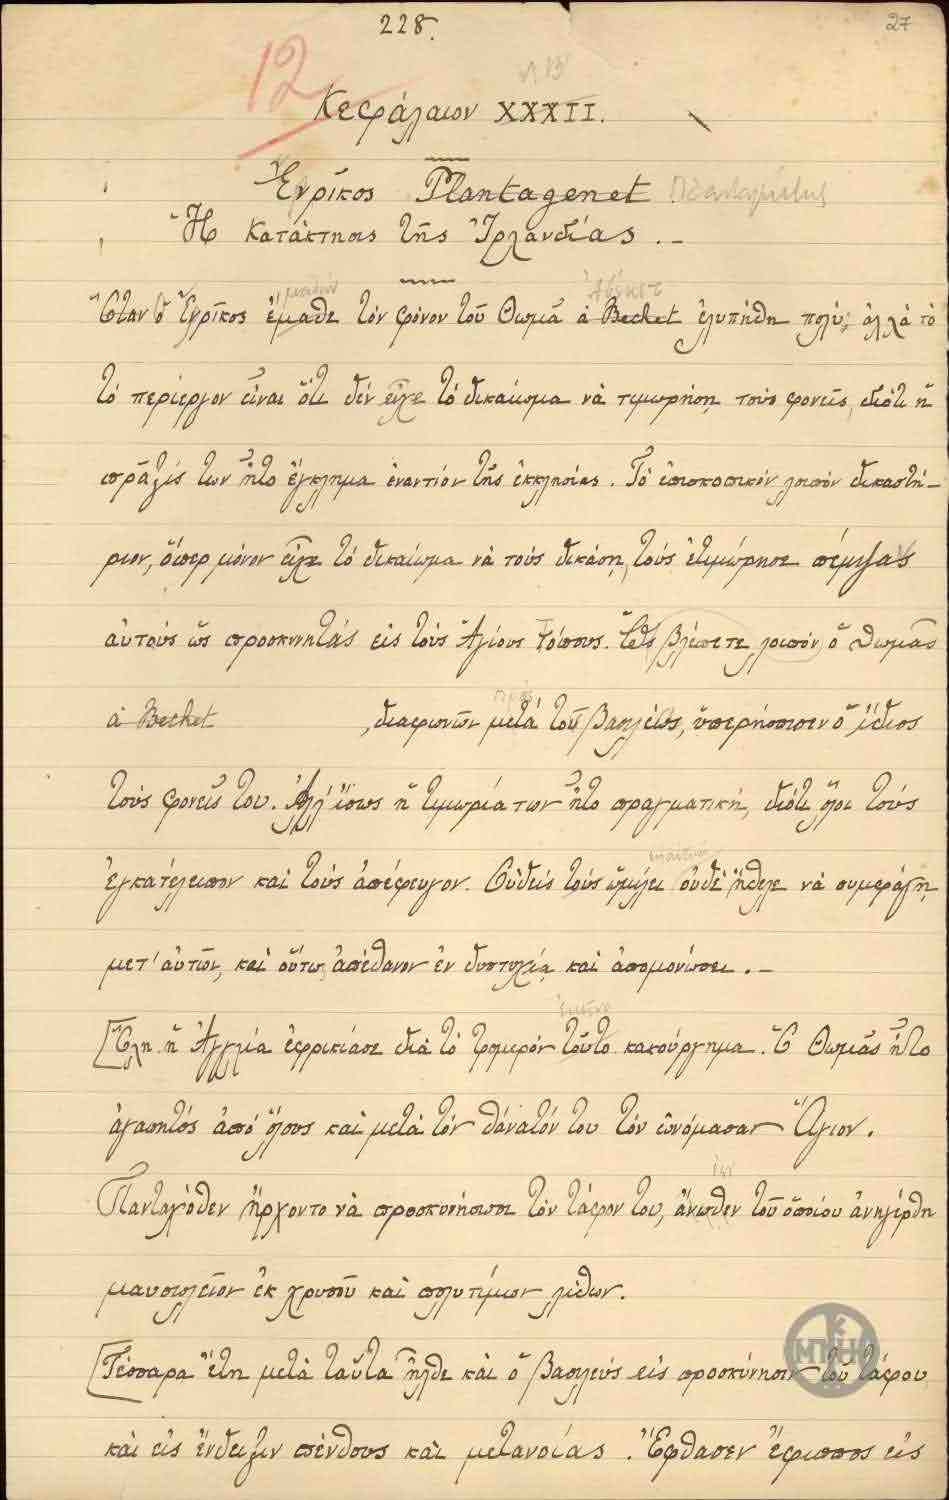 228.
27
12
Κεφάλαιον XXXII.
Ἑνρῖκος Plantagenet
Ἡ κατάκτησις τῆς Ἰρλανδίας.-
Ὅταν ὁ Ἑνρῖκος ἔμαθε τὸν φόνον τοῦ Θωμᾶ ἀ Becket ἐλυπήθη πολύ, ἀλλὰ τὸ
τὸ περίεργον εἶναι ὅτι δέν εἶχε τὸ δικαίωμα νὰ τιμωρήσῃ τοὺς φονεῖς, διότι ἡ
πρᾶξίς των ἦτο ἔγκλημα ἐναντίον τῆς ἐκκλησίας. Τὸ ἐπισκοπικόν λοιπὸν δικαστή-
ριον, ὅπερ μόνον εἶχε τὸ δικαίωμα νὰ τοὺς δικάσῃ, τοὺς ἐτιμώρησε πέμψας
αὐτοὺς ὡς προσκυνητάς εἰς τοὺς Ἁγίους Τόπους. Ὡς βλέπετε λοιπόν ὁ Θωμᾶς
ἀ Becket , διαφωνῶν μετά τοῦ Βασιλέως, ὑπερήσπισεν ὁ ἴδιος
τοὺς φονεῖς του. Ἀλλ' ἴσως ἡ τιμωρία των ἦτο πραγματική, διότι ὅλοι τοὺς
ἐγκατέλειπον καὶ τοὺς ἀπέφευγον. Οὐδεὶς τοὺς ὡμίλει οὐδὲ ἤθελε νὰ συμφάγῃ
μετ' αὐτῶν, καὶ οὕτω ἀπέθανον ἐν δυστυχίᾳ καὶ ἀπομονώσει.-
[Ὅλη ἡ Ἀγγλία ἐφρικίασε διὰ τὸ τρομερόν τοῦτο κακούργημα. Ὁ Θωμᾶς ἦτο
ἀγαπητός ἀπό ὅλους καὶ μετὰ τὸν θάνατόν του τὸν ὠνόμασαν Ἅγιον.
Πανταχόθεν ἤρχοντο νὰ προσκυνήσωσι τὸν τάφον του, ἄνωθεν τοῦ ὁποίου ἀνηγέρθη
μαυσωλεῖον ἐκ χρυσοῦ καὶ πολυτίμων λίθων.
[Τέσσαρα ἔτη μετὰ ταῦτα ἦλθε καὶ ὁ βασιλεὺς εἰς προσκύνησιν τοῦ τάφου
καὶ εἰς ἔνδειξιν πένθους καὶ μετανοίας. Ἔφθασεν ἔφιππος εἰς